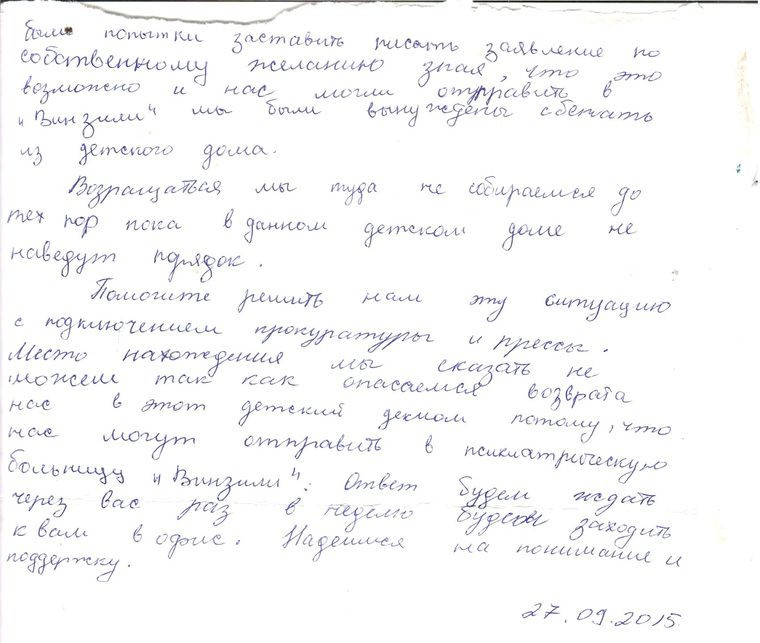 были попытки заставить писать заявление по
собственному желанию зная, что это
возможно и нас могли отправить в
"Винзили" мы были вынуждены сбежать
из детского дома.
Возращаться мы туда не собираемся до
тех пор пока в данном детском доме не
наведут порядок.
Помогите решить нам эту ситуацию
с подключением прокуратуры и прессы.
Место нахождения мы сказать не
можем так как опасаемся возврата
нас в этот детский потому, что
нас могут отправить в психиатрическую
больницу "Винзили". Ответ будем ждать
через вас раз в неделю будем заходить
к вам в офис. Надеимся на понимание и
поддержку.
27.09.2015